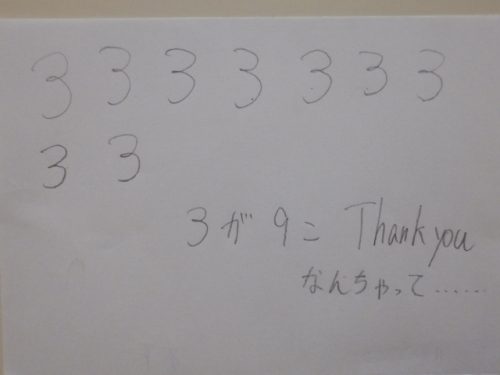 3 3 3 3 3 3 3
3 3
3が9= Thank you
なんちゃって……